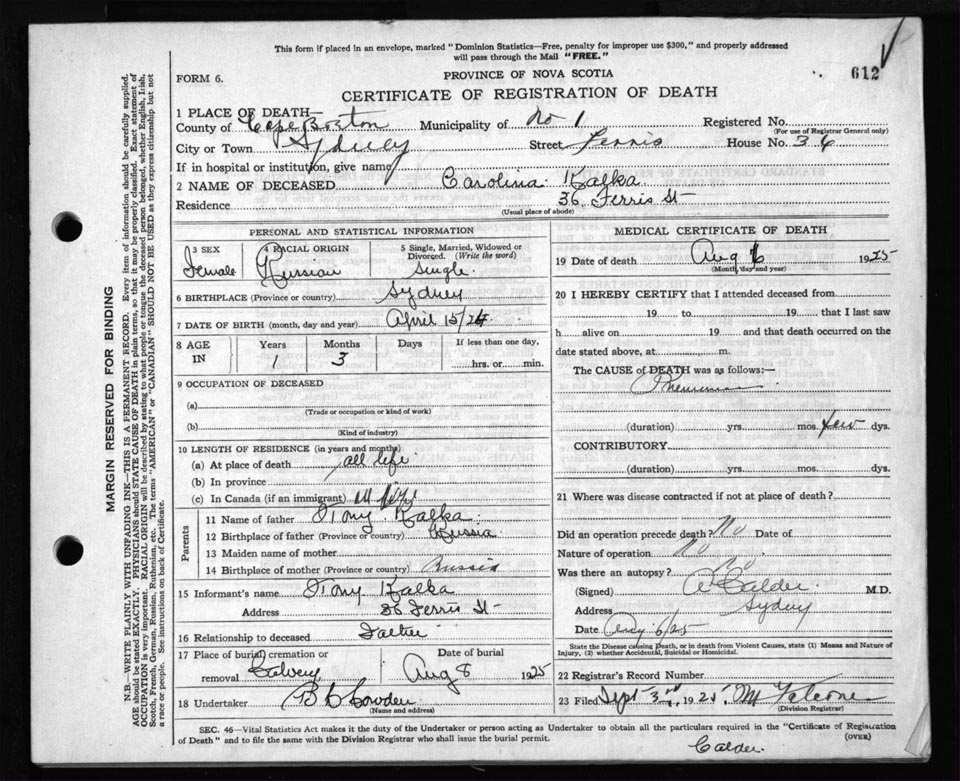 This form if placed in an envelope, marked "Dominion Statistics—Free, penalty for improper use $300," and properly addressed
will pass through the Mail "FREE."
FORM 6.
PROVINCE OF NOVA SCOTIA
612
CERTIFICATE OF REGISTRATION OF DEATH
1 PLACE OF DEATH—
County of Cape Breton Municipality of No 1 Registered No.
(For use of Registrar General only)
City or Town Sydney Street Ferris House No. 36
If in hospital or institution, give name
2 NAME OF DECEASED Carolina Kalka
Residence 36 Ferris St
(Usual place of abode)
PERSONAL AND STATISTICAL INFORMATION
3 SEX 4 RACIAL ORIGIN 5 Single, Married, Widowed or Divorced. (Write the word)
Female Russian Single
6 BIRTHPLACE (Province or country) Sydney
7 DATE OF BIRTH (month, day and year) April 15/24
8 AGE IN Years Months Days If less than one day,
1 3 hrs. or min.
9 OCCUPATION OF DECEASED
(a)
(Trade or occupation or kind of work)
(b)
(Kind of industry)
10 LENGTH OF RESIDENCE (in years and months)
(a) At place of death all life
(b) In province
(c) In Canada (if an immigrant)
Parents
11 Name of father Tony Kalka
12 Birthplace of father (Province or country) Russia
13 Maiden name of mother
14 Birthplace of mother (Province or country) Russia
15 Informant's name Tony Kalka
Address 36 Ferris St
16 Relationship to deceased Father
17 Place of burial, cremation or removal Date of burial
Calvery Aug 8 1925
18 Undertaker
(Name and address)
MEDICAL CERTIFICATE OF DEATH
19 Date of death Aug 6 1925
(Month, day and year)
20 I HEREBY CERTIFY that I attended deceased from
19 to 19 that I last saw
h alive on 19 and that death occurred on
date stated above, at m.
The CAUSE of DEATH was as follows:—
(duration) yrs. mos. few dys.
CONTRIBUTORY
(duration) yrs. mos. dys.
21 Where was disease contracted if not at place of death?
Did an operation precede death? No Date of
Nature of operation No
Was there an autopsy? No
(Signed) A Calder M.D.
Address Sydney
Date Aug 6/25
State the Disease causing Death, or in death from Violent Causes, state (1) Means and Nature of Injury, (2) whether Accidental, Suicidal or Homicidal.
22 Registrar's Record Number
23 Filed Sept 3rd, 1925.
(Division Registrar)
SEC. 46—Vital Statistics Act makes it the duty of the Undertaker or person acting as Undertaker to obtain all the particulars required in the "Certificate of Registration
of Death" and to file the same with the Division Registrar who shall issue the burial permit.
(OVER)
Calder.
MARGIN RESERVED FOR BINDING
N.B.—WRITE PLAINLY WITH UNFADING INK—THIS IS A PERMANENT RECORD. Every item of information should be carefully supplied.
AGE should be stated EXACTLY. PHYSICIANS should STATE CAUSE OF DEATH in plain terms, so that it may be properly classified. Exact statement of
OCCUPATION is very important. RACIAL ORIGIN will be described by stating to what people or tongue the deceased person belonged, whether English, Irish,
Scotch, French, German, Russian, Ruthenian, etc. The terms "AMERICAN" or "CANADIAN" SHOULD NOT BE USED as they express citizenship but not
a race or people. See instructions on back of Certificate.